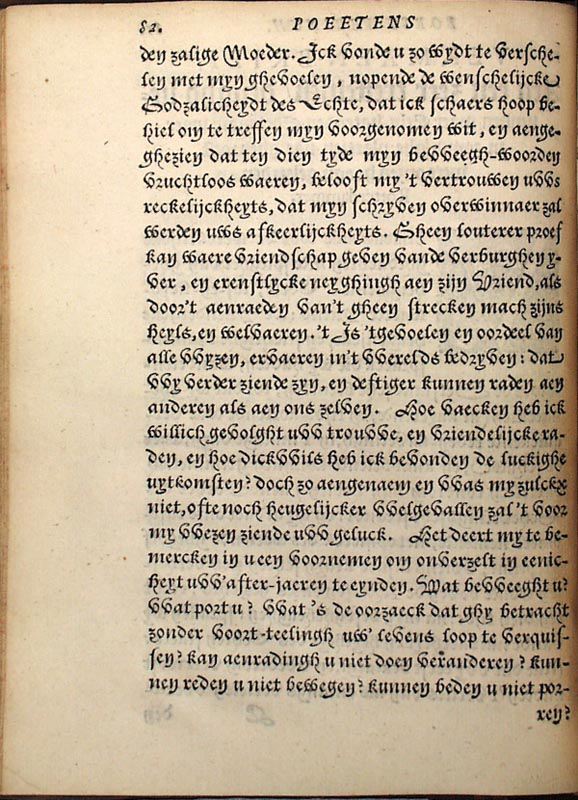 82. POEETENS
den zalige Moeder. Ick vonde u zo wydt te versche-
len met myn ghevoelen, nopende de wenschelijcke
Godzalicheydt des Echte, dat ick schaers hoop be-
hiel om te treffen myn voorgenomen wit, en aenge-
ghezien dat ten dien tyde myn bevveegh-woorden
vruchtloos waeren, belooft my 't vertrouwen uvvs
reckelijckheyts, dat myn schryven overwinnaer zal
werden uws afkeerlijckheyts. Gheen louterer proef
kan waere vriendschap geven vande verburghen y-
ver, en erenstlycke neyghingh aen zijn Vriend, als
door't aenraeden van't gheen strecken mach zijns
heyls, en welvaeren. 't Is 'tgevoelen en oordeel van
alle vvyzen, ervaeren in't vverelds bedryven: dat
vvy verder ziende zyn, en deftiger kunnen raden aen
anderen als aen ons zelven. Hoe vaecken heb ick
willich gevolght uvv trouvve, en vriendelijcke ra-
den, en hoe dickvvils heb ick bevonden de luckighe
uytkomsten? doch zo aengenaem en vvas my zulckx
niet, ofte noch heugelijcker vvelgevallen zal 't voor
my vvezen ziende uvv geluck. Het deert my te be-
mercken in u een voornemen om onverzelt in eenic-
heyt uvv'after-jaeren te eynden. Wat bevveeght u?
vvat port u? vvat 's de oorzaeck dat ghy betracht
zonder voort-teelingh uw' levens loop te verquis-
sen? kan aenradingh u niet doen veranderen? kun-
nen reden u niet bewegen? kunnen beden u niet por-
ren?